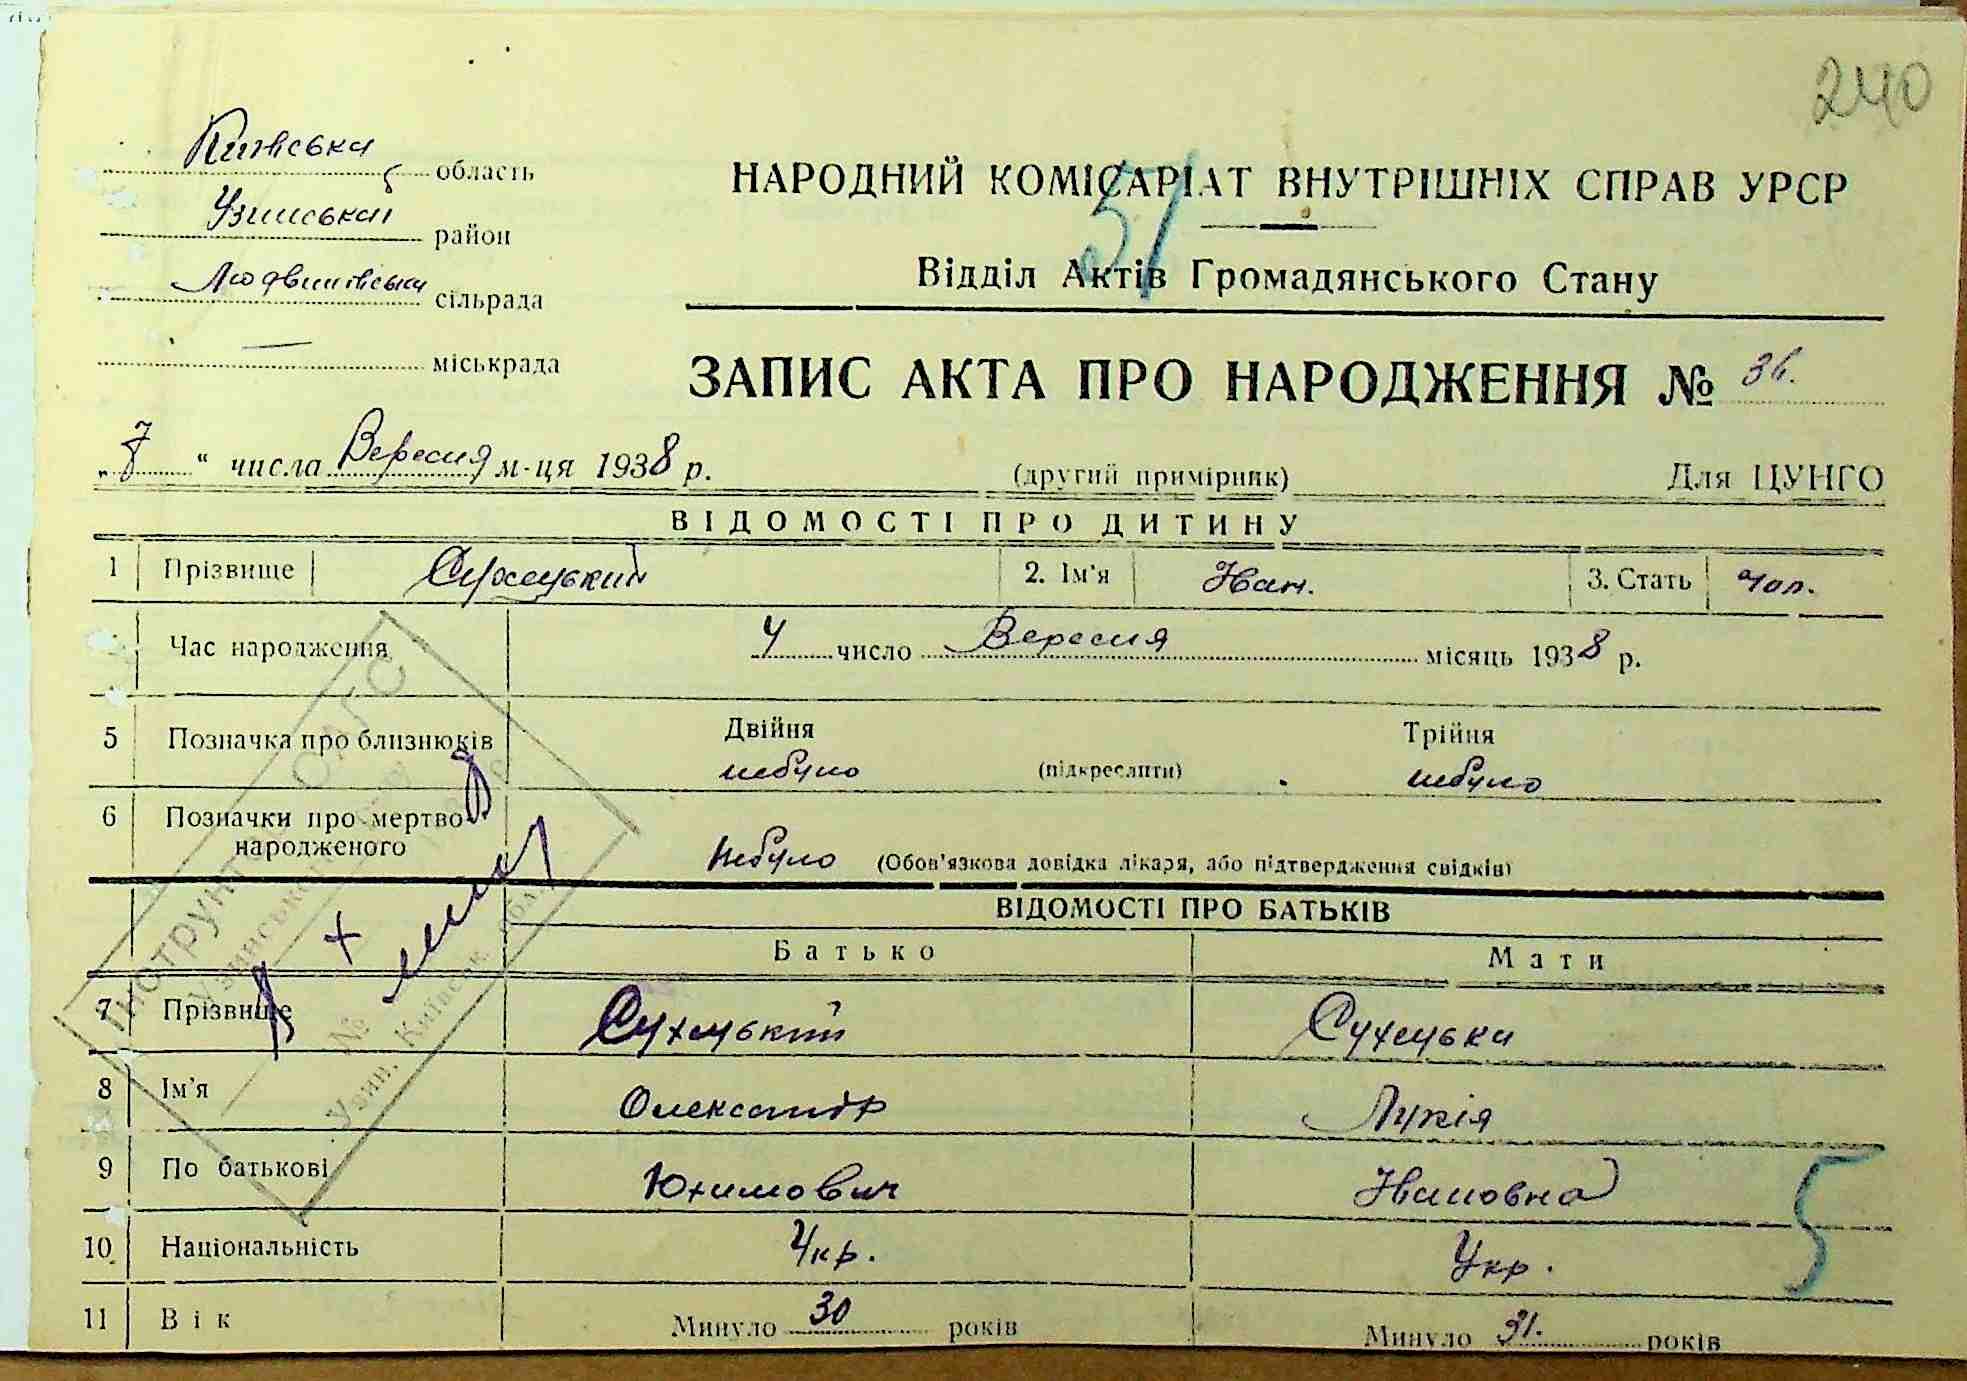 240
Київська область
Узинський район
сільрада
міськрада
НАРОДНИЙ КОМІСАРІАТ ВНУТРІШНІХ СПРАВ УРСР
57
Відділ Актів Громадянського Стану
ЗАПИС АКТА ПРО НАРОДЖЕННЯ № 36.
„7“ числа Вересня м-ця 1938 р.
(другий примірник)
Для ЦУНГО
ВІДОМОСТІ ПРО ДИТИНУ
1 Прізвище Сухецький 2. Ім'я Іван. 3. Стать чол.
Час народження 4 число Вересня місяць 1938 р.
5 Позначка про близнюків Двійня небуло (підкреслити) Трійня небуло
6 Позначки про мертво-
народженого Небуло (Обов'язкова довідка лікаря, або підтвердження свідків)
ВІДОМОСТІ ПРО БАТЬКІВ
Батько Мати
7 Прізвище Сухецький Сухецька
8 Ім'я Олександр Лукія
9 По батькові Юхимович Івановна
10 Національність Укр. Укр.
5
11 Вік Минуло 30 років Минуло 31. років
ЗАГС
№
Узин. Київськ. обл.